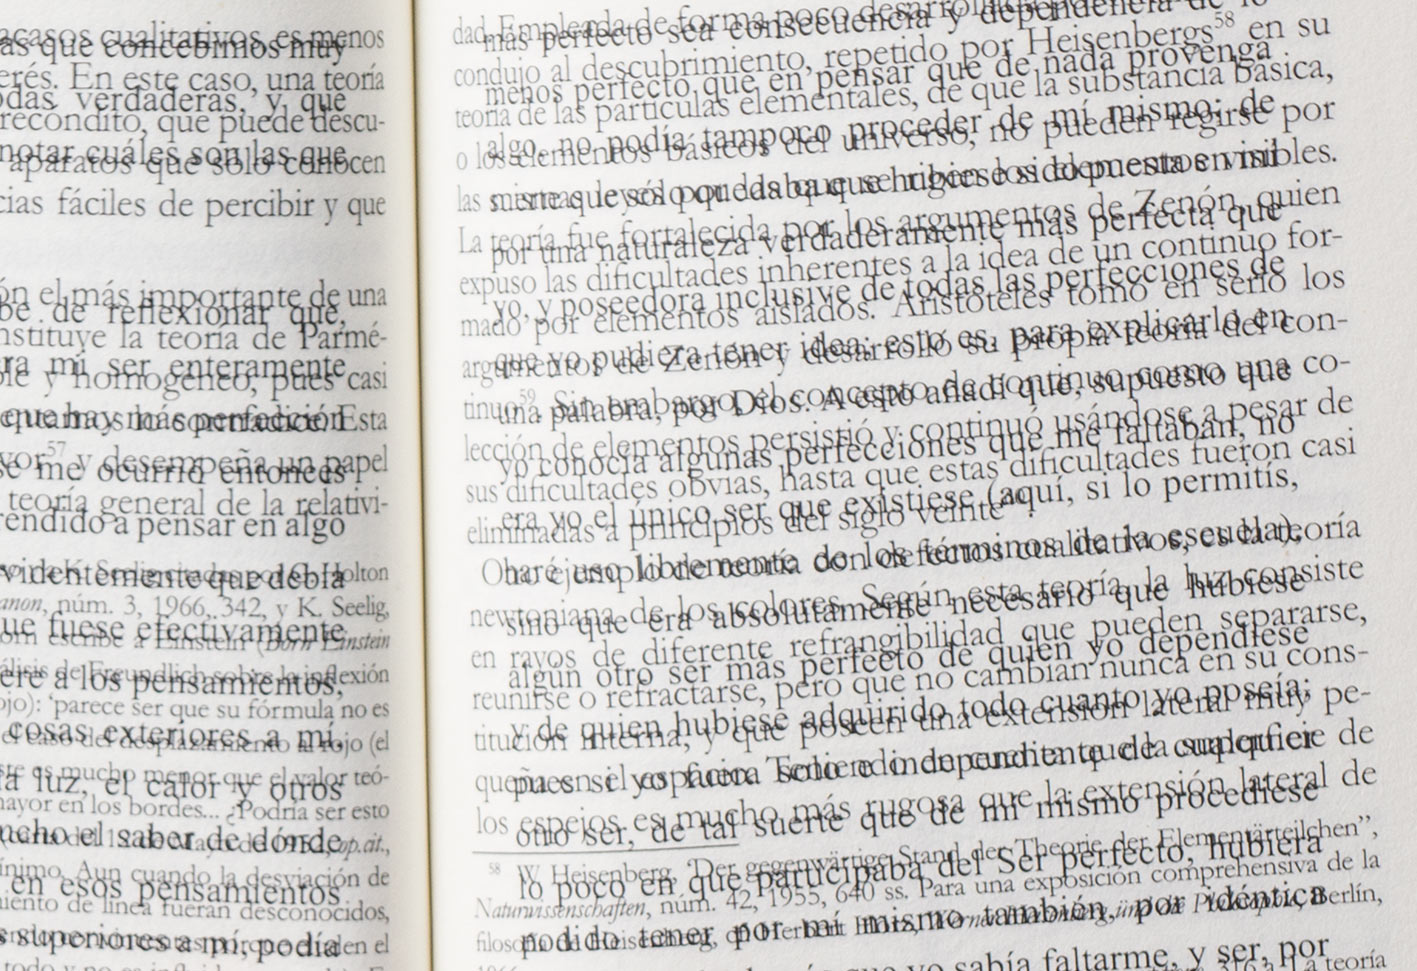 acasos cualitativos, es menos
as que concebimos muy
erés. En este caso, una teoría
odas verdaderas, y que
recóndito, que puede descu-
notar cuáles son las que
aparatos que sólo conocen
cias fáciles de percibir y que
ón el más importante de una
be de reflexionar que,
nstituye la teoría de Parmé-
ra mí ser enteramente
y homogéneo, pues casi
que hay más perfección
Esta
yor⁵⁷ y desempeña un papel
se me ocurrió entonces
teoría general de la relativi-
rendido a pensar en algo
Holton
videntemente que debía
anon, núm. 3, 1966, 342, y K. Seelig,
ue fuese efectivamente
escribe a Einstein (Born Einstein
álisis de Freundlich sobre la inflexión
ere a los pensamientos,
ojo): 'parece ser que su fórmula no es
el caso del desplazamiento al rojo (el
cosas exteriores a mí,
es mucho menor que el valor teó-
a luz, el calor y otros
mayor en los bordes... ¿Podría ser esto
op.ait.,
ucho el saber de dónde
nimo. Aun cuando la desviación de
en esos pensamientos
iento de línea fueran desconocidos,
en el
s superiores a mí, podía
dad Empleada de forma poco
más perfecto sea consecuencia y dependencia de lo
condujo al descubrimiento, repetido por Heisenbergs⁵⁸ en su
menos perfecto que en pensar que de nada provenga
teoría de las partículas elementales, de que la substancia básica,
algo, no podía tampoco proceder de mí mismo; de
o los elementos básicos del universo, no pueden regirse por
las mismas leyes por las que se rigen los elementos visibles.
suerte que sólo quedaba que hubiese sido puesta en mí
La teoría fue fortalecida por los argumentos de Zenón, quien
por una naturaleza verdaderamente más perfecta que
expuso las dificultades inherentes a la idea de un continuo for-
yo, y poseedora inclusive de todas las perfecciones de
mado por elementos aislados. Aristóteles tomó en serio los
que yo pudiera tener idea; esto es, para explicarlo en
argumentos de Zenón y desarrolló su propia teoría del con-
una palabra, por Dios. A esto añadí que, supuesto que
tinuo⁵⁹. Sin embargo, el concepto de continuo como una co-
yo conocía algunas perfecciones que me faltaban, no
lección de elementos persistió y continuó usándose a pesar de
sus dificultades obvias, hasta que estas dificultades fueron casi
era yo el único ser que existiese (aquí, si lo permitís,
eliminadas a principios del siglo veinte
haré uso libremente de los términos de la escuela);
Otro ejemplo de teoría con defectos cualitativos, es la teoría
sino que era absolutamente necesario que hubiese
newtoniana de los colores. Según esta teoría, la luz consiste
algún otro ser más perfecto de quien yo dependiese
en rayos de diferente refrangibilidad que pueden separarse,
reunirse o refractarse, pero que no cambian nunca en su cons-
y de quien hubiese adquirido todo cuanto yo poseía;
titución interna, y que poseen una extensión lateral muy pe-
pues si yo fuera solo e independiente de cualquier
queña en el espacio. Teniendo en cuenta que la superficie de
otro ser, de tal suerte que de mí mismo procediese
los espejos es mucho más rugosa que la extensión lateral de
lo poco en que participaba del Ser perfecto, hubiera
⁵⁸ W. Heisenberg, 'Der gegenwärtige Stand der Theorie der Elementärteilchen",
Naturwissenschaften, núm. 42, 1955, 640 ss. Para una exposición comprehensiva de la
podido tener por mí mismo también, por idéntica
filosofía de Heisenberg, cf. Herbert Berlín,
yo sabía faltarme, y ser, por
teoría